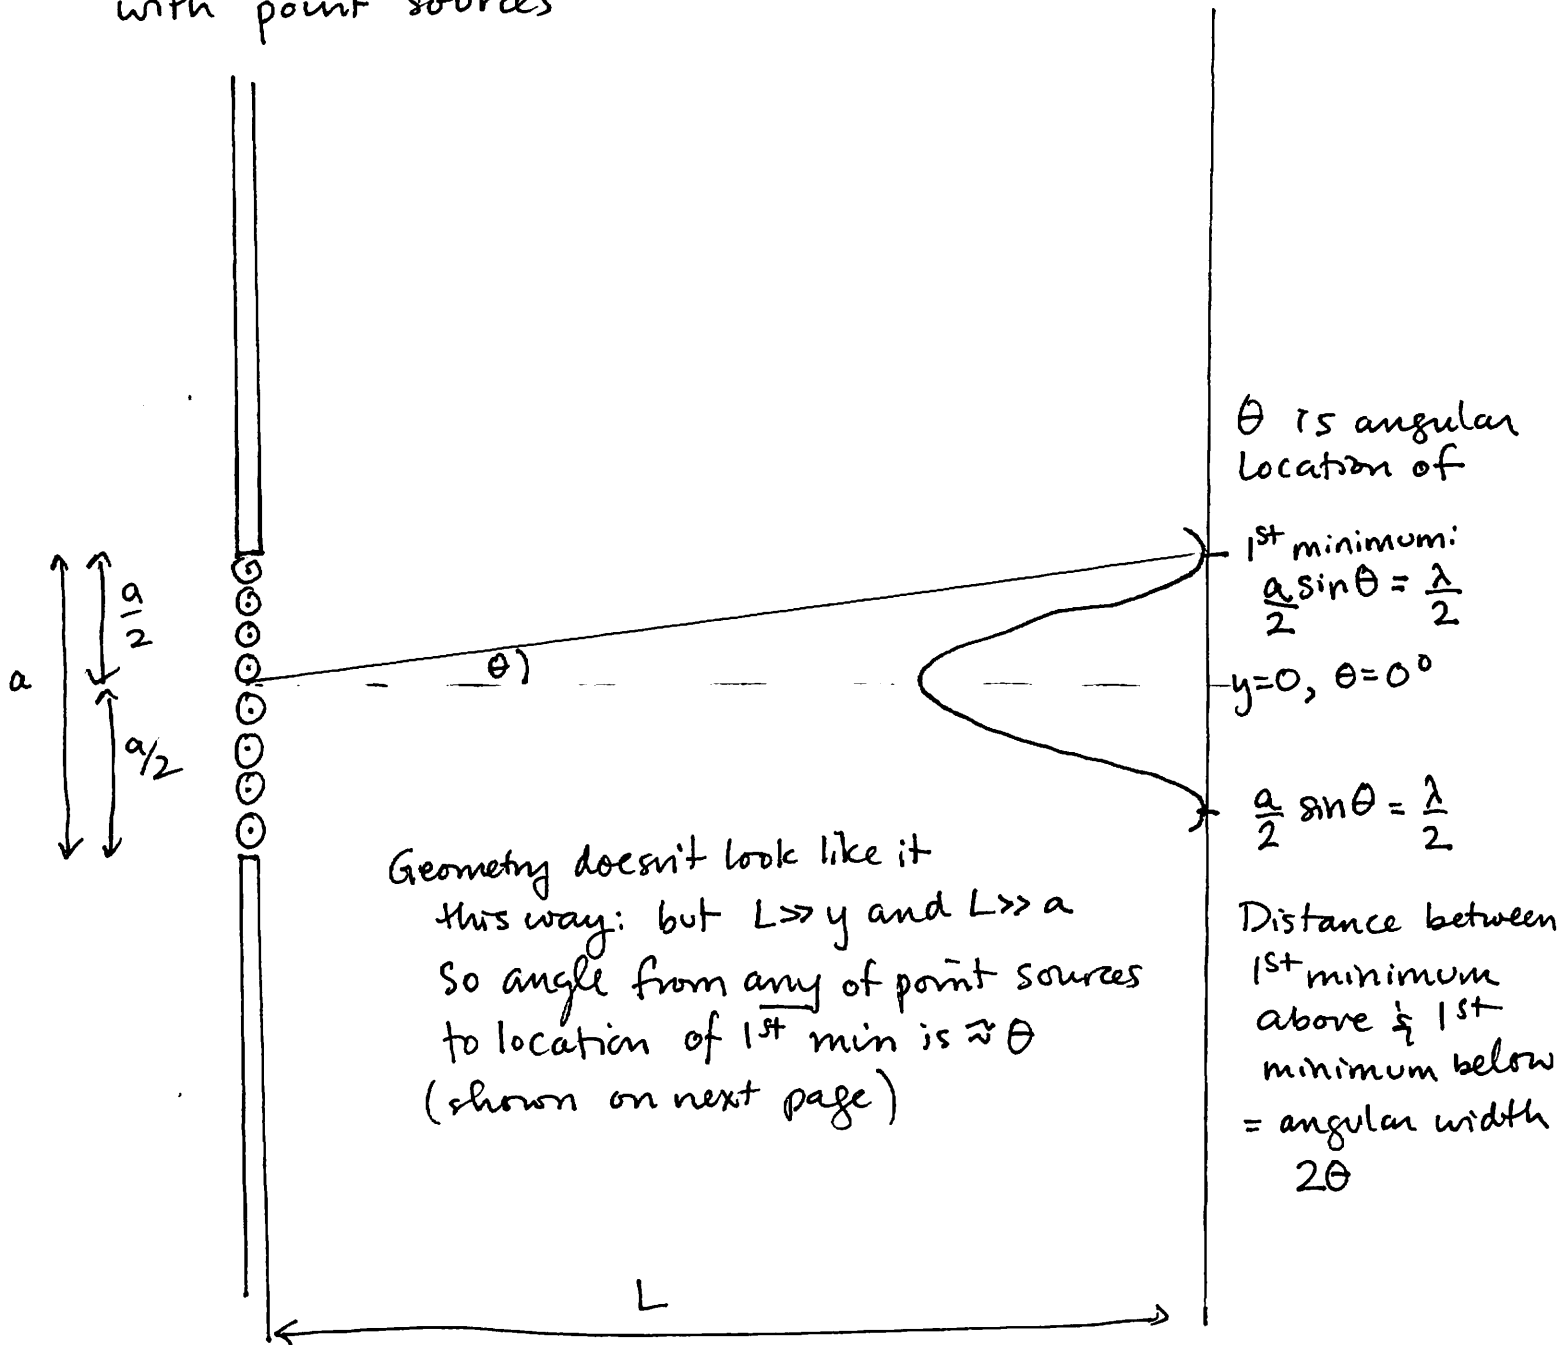 with point sources
θ is angular
location of
1st minimum:
a/2 sinθ = λ/2
a
a/2
θ
y=0, θ=0°
a/2
a/2 sinθ = λ/2
Geometry doesn't look like it
this way: but L≫y and L≫a
So angle from any of point sources
to location of 1st min is ≈ θ
(shown on next page)
Distance between
1st minimum
above & 1st
minimum below
= angular width
2θ
L